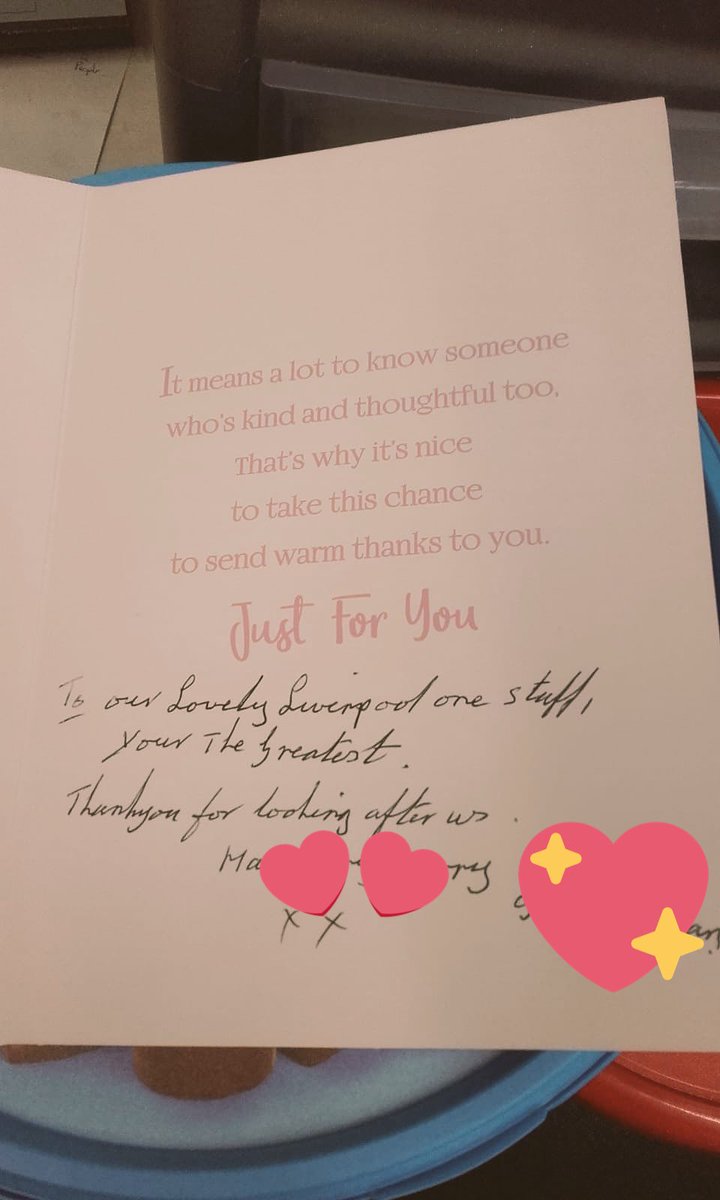 People
It means a lot to know someone
who's kind and thoughtful too,
That's why it's nice
to take this chance
to send warm thanks to you.
Just For You
To our Lovely Liverpool one staff,
your The Greatest.
Thankyou for looking after us.
x x